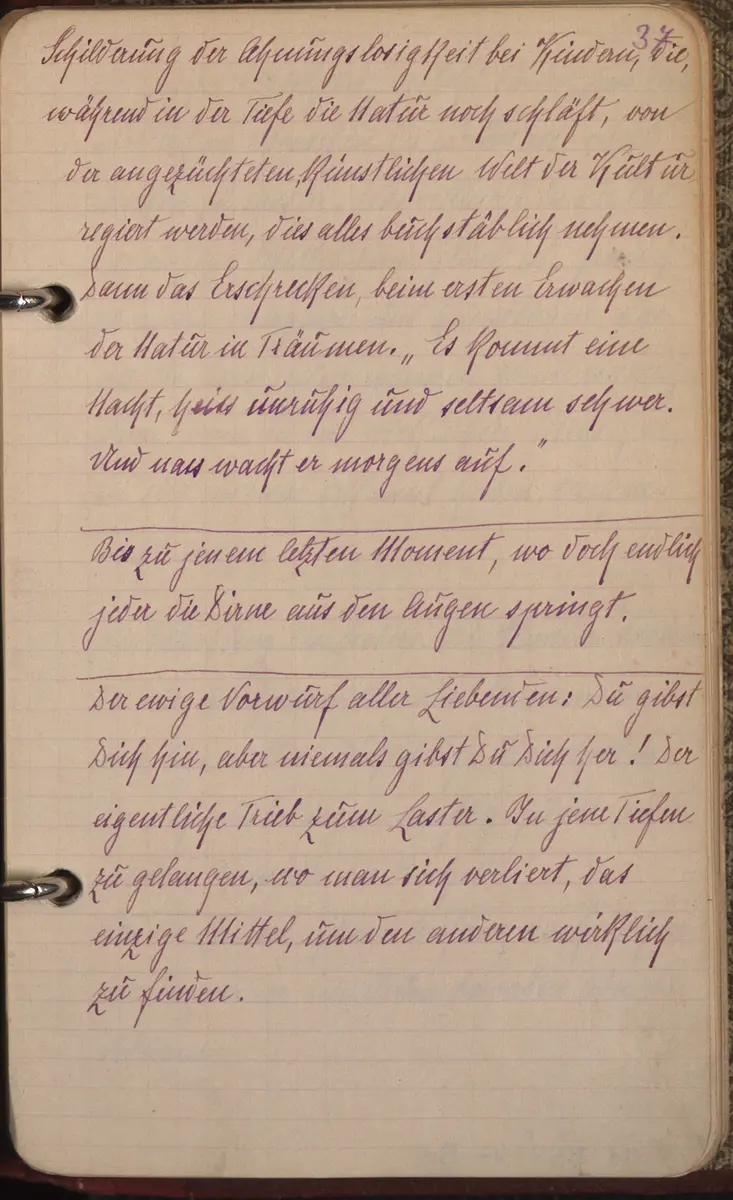 37
Schilderung der Ahnungslosigkeit bei Kindern, die,
während in der Tiefe die Natur noch schläft, von
der angezüchteten, künstlichen Welt der Kultur
regiert werden, dies alles buchstäblich nehmen.
Dann das Erschrecken, beim ersten Erwachen
der Natur in Träumen. „Es kommt eine
Nacht, heiss unruhig und seltsam schwer.
Und nass wacht er morgens auf."
Bis zu jenem letzten Moment, wo doch endlich
jeder die Dirne aus den Augen springt.
Der ewige Vorwurf aller Liebenden: Du gibst
Dich hin, aber niemals gibst Du Dich her! Der
eigentliche Trieb zum Laster. In jene Tiefen
zu gelangen, wo man sich verliert, das
einzige Mittel, um den anderen wirklich
zu finden.